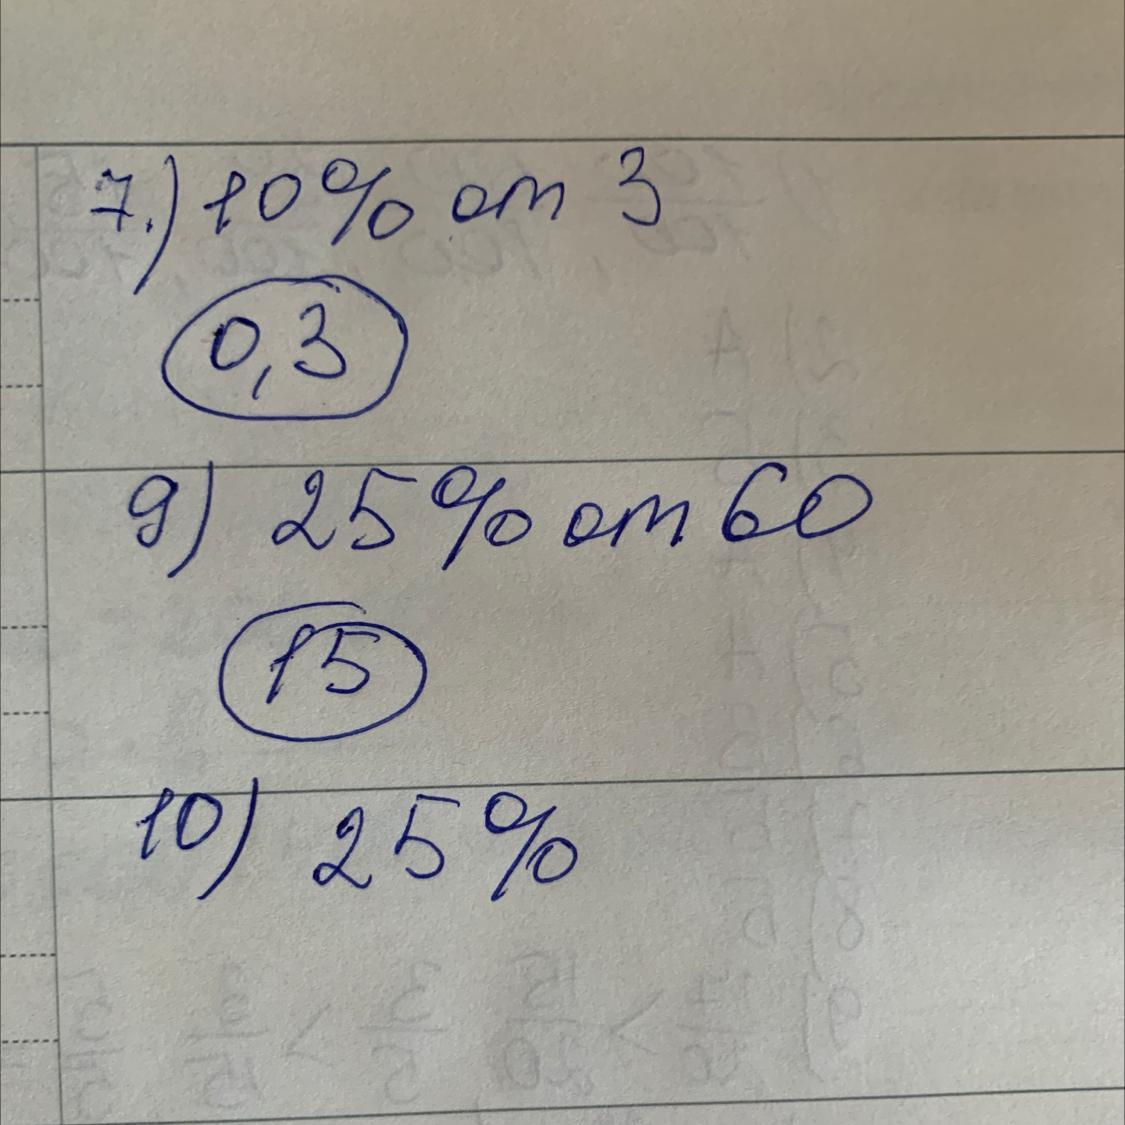 7.) 10% от 3
0,3
9) 25% от 60
15
10) 25%